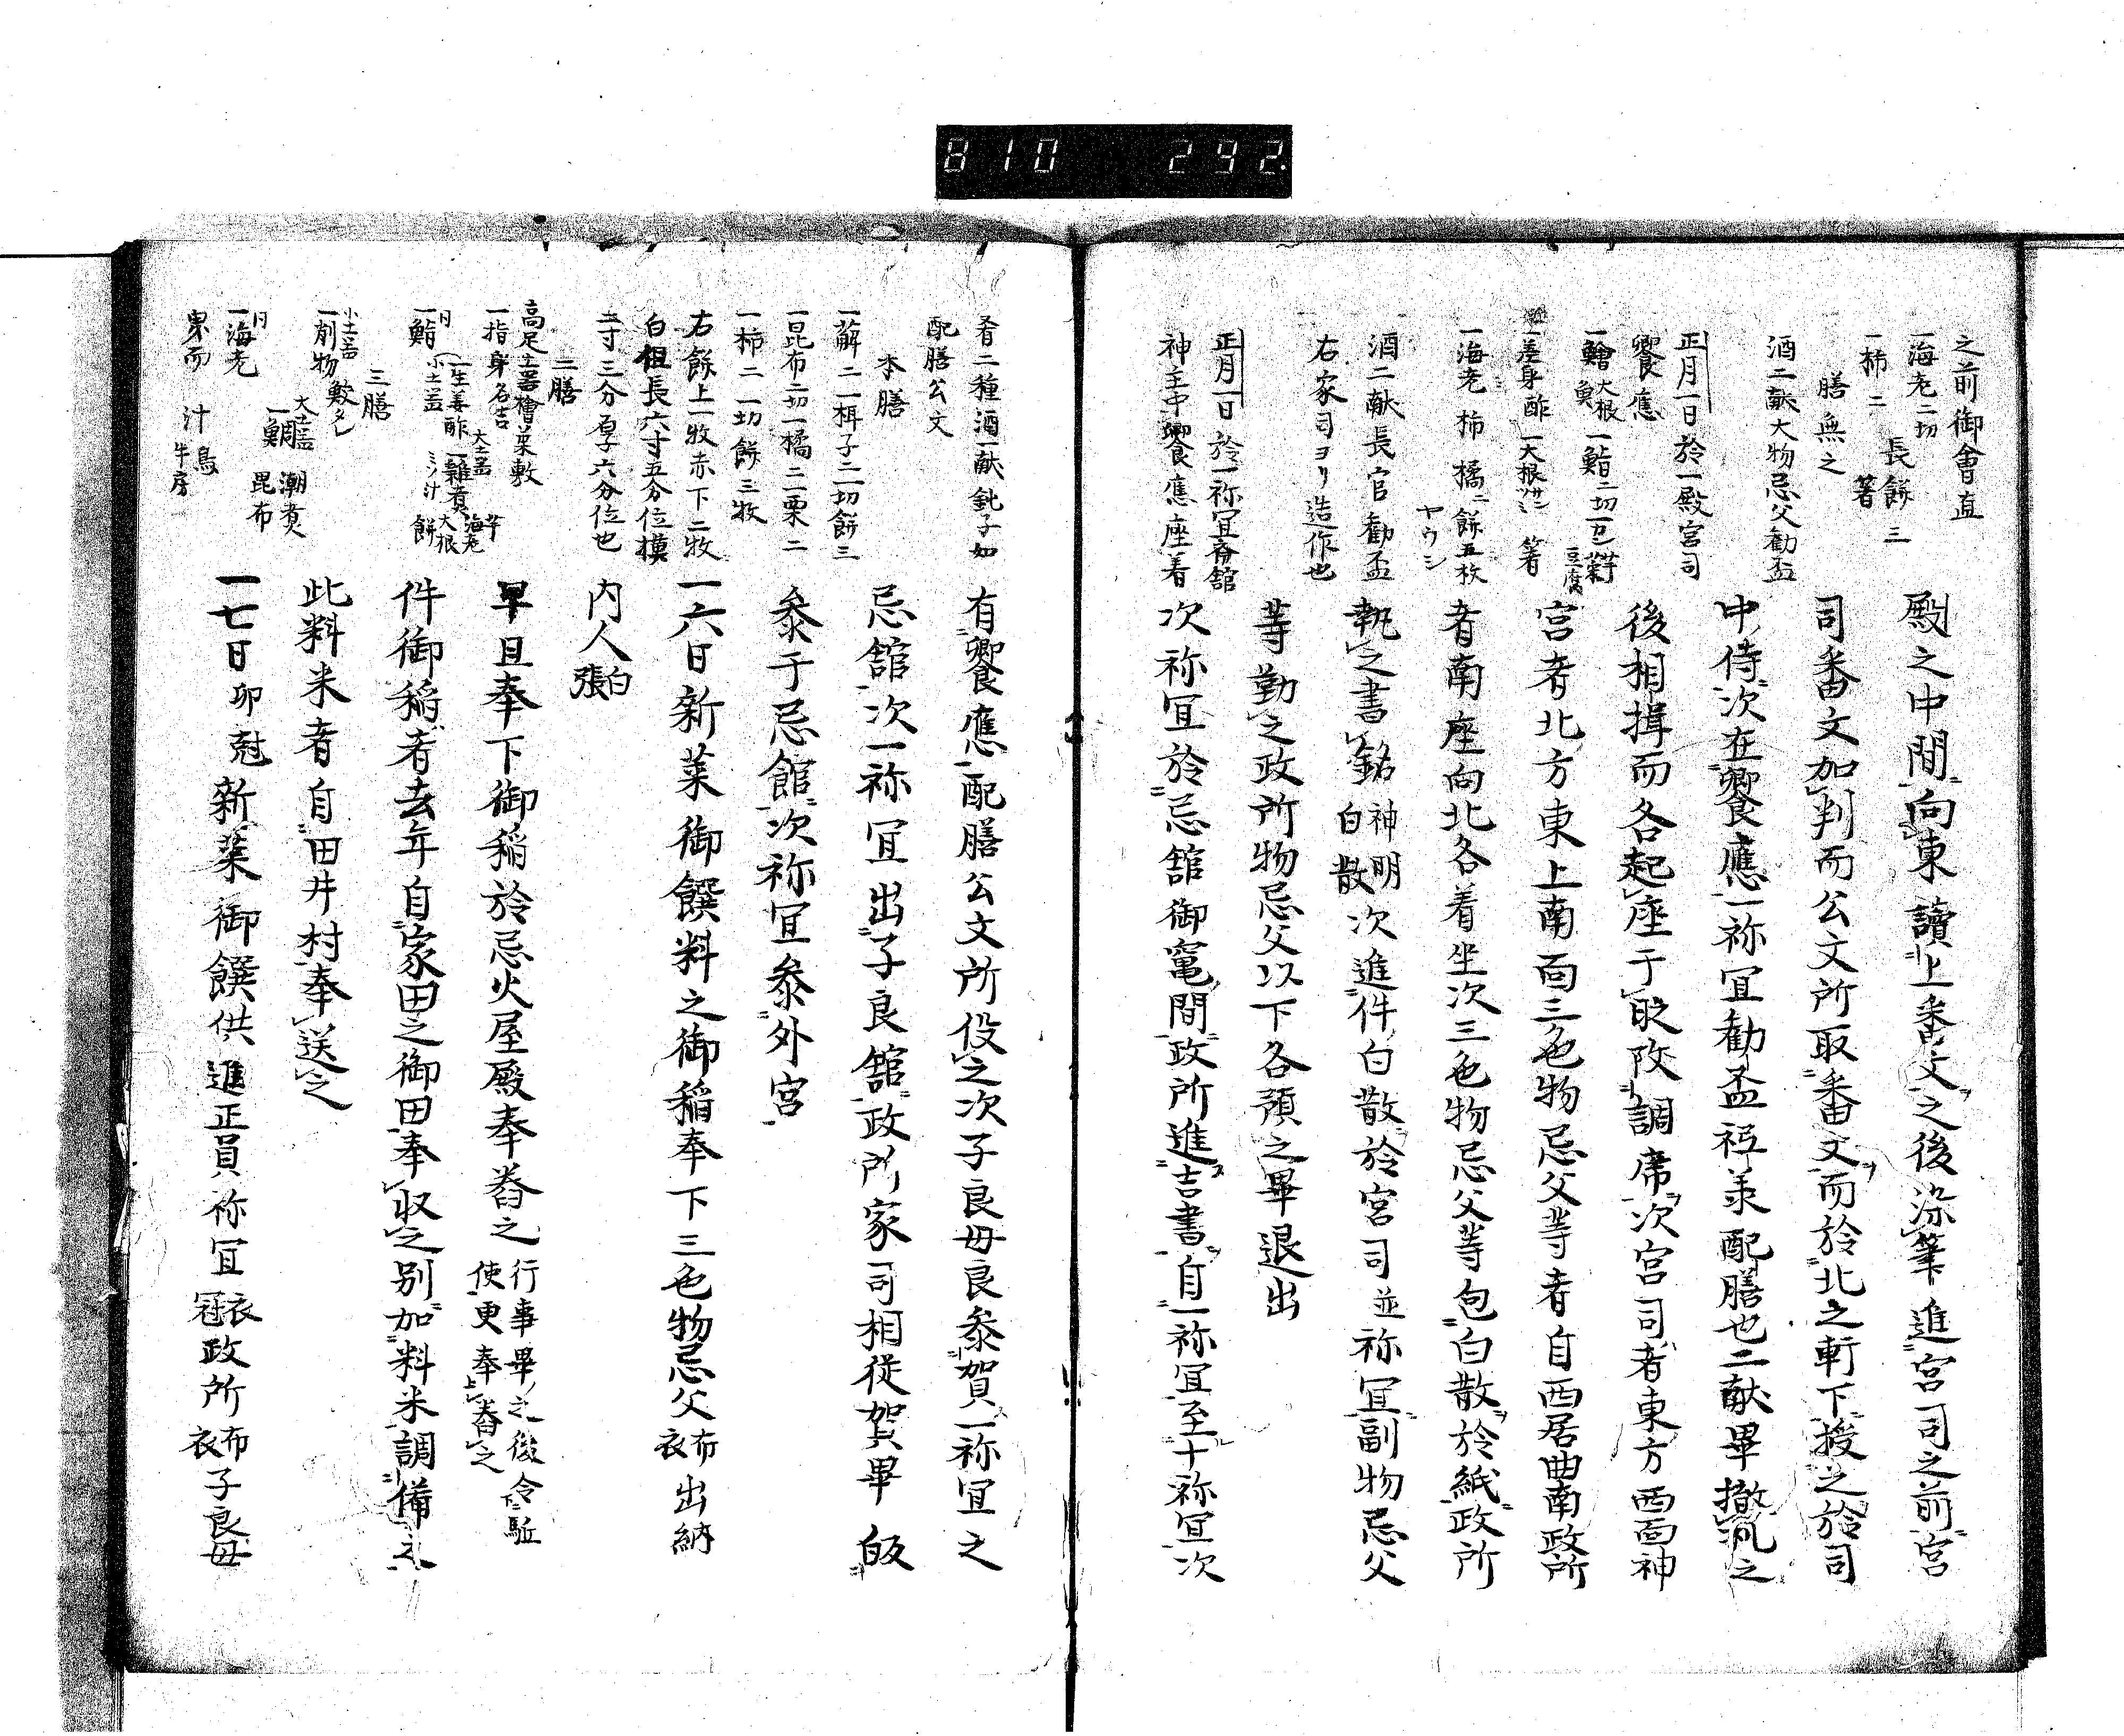 810 292.
之前御會直
一海老二切 長餅三
一柿二 箸
膳無之
酒二献大物忌父勸盃
正月一日於一殿宮司
饗應
一鱠 大根 魚 一鮨二切
豆腐
一差身酢 一大根 箸
一海老 柿 橘二 餅五枚
ヤウシ
酒二献長官勸盃
右家司ヨリ造作也
正月一日於一祢冝斎舘
神主中饗應座着
殿之中間向東讀上番文之後染筆進宮司之前宮
司番文加判而公文所取番文而於北之軒下授之於司
中侍次在饗應一祢冝勸盃 配膳也二献畢撤瓶之
後相揖而各起座于改調席次宮司者東方西面神
宮者北方東上南面三色物忌父等者自西居曲南政所
者南座向北各着坐次三色物忌父等包白散於紙政所
執之書銘 神明白散 次進件白散於宮司並祢冝副物忌父
等勤之政所物忌父以下各預之畢退出
次祢冝於忌舘御竃間政所進吉書自一祢冝至十祢冝次
肴二種酒一献銚子如
配膳公文
本膳
一餅二一柑子二切餅三
一昆布二切一橘二二栗二
一柿二一切餅三牧
右餅上一牧赤下二牧
白但長六寸五分位横
二寸三分厚子六分位也
二膳
高足土器檜葉敷
一指身名吉 大土器
一生姜酢一雜煮 芋 海老 大根 餅
一鮨 小土器 ミソ汁
三膳
小土器
一削物 數多 大土器
一鯛 潮煮 昆布
一海老
汁 鳥 牛房
有饗應配膳公文所役之次子良母良叅賀一祢冝之
忌舘次一祢冝出子良舘政所家司相従賀畢皈
叅于忌館次祢冝叅外宮
一六日新菜御饌料之御稲奉下三色物忌父 布衣 出納
内人 白張
早旦奉下御稲於忌火屋殿奉舂之 行事畢之後令 使更奉上舂之
件御稲者去年自家田之御田奉収之別加料米調備之
此料米者自田井村奉送之
一七日卯尅新菜御饌供進正員祢冝 衣冠 政所 布衣 子良母